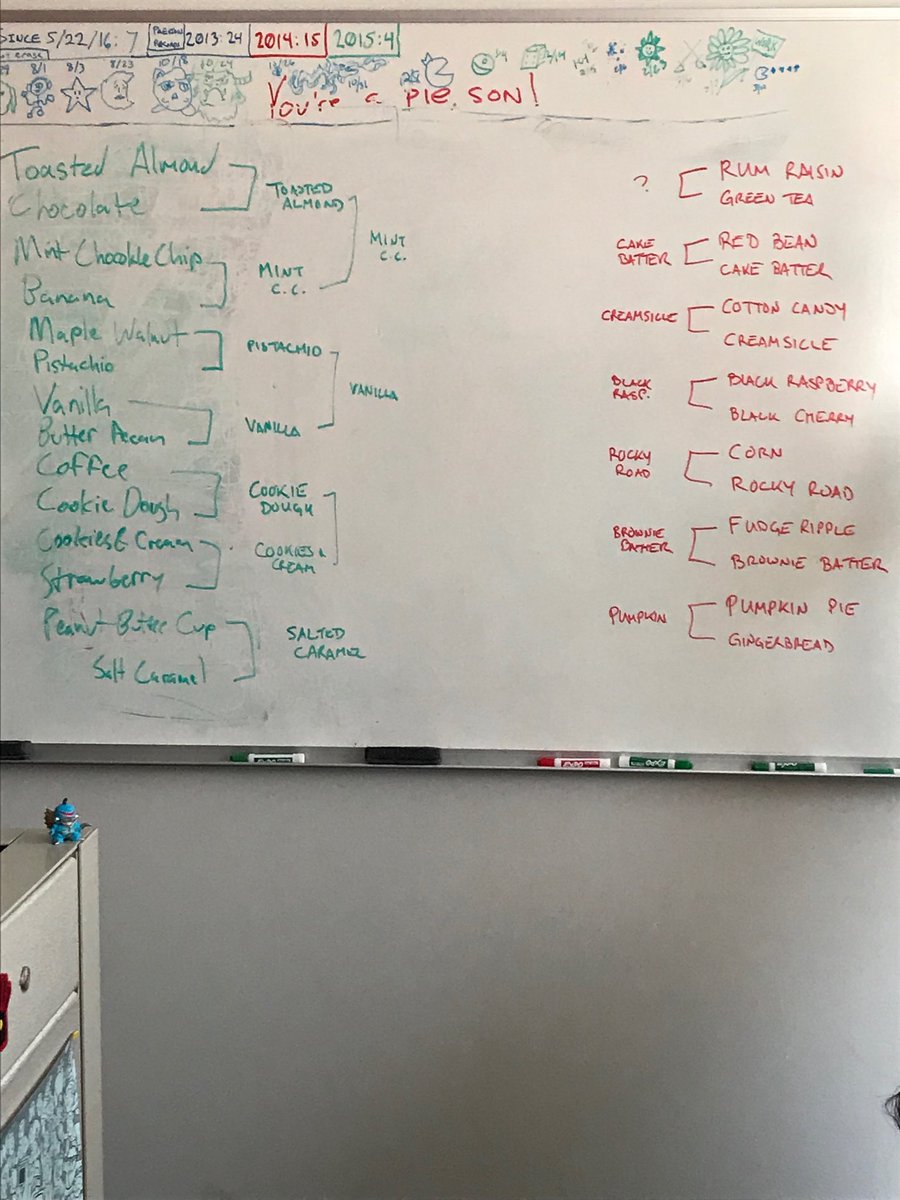 SINCE 5/22/16: 7 PREVIOUS RECORDS 2013: 24 2014: 15 2015: 4
8/1 8/3 8/23 10/18 10/24 10/31
You're a PIE, SON!
Toasted Almond
Chocolate
Mint Chocolate Chip
Banana
Maple Walnut
Pistachio
Vanilla
Butter Pecan
Coffee
Cookie Dough
Cookies & Cream
Strawberry
Peanut Butter Cup
Salt Caramel
TOASTED
ALMOND
MINT
C.C.
PISTACHIO
VANILLA
COOKIE
DOUGH
COOKIES &
CREAM
SALTED
CARAMEL
MINT
C.C.
VANILLA
?
CAKE
BATTER
CREAMSICLE
BLACK
RASP.
ROCKY
ROAD
BROWNIE
BATTER
PUMPKIN
RUM RAISIN
GREEN TEA
RED BEAN
CAKE BATTER
COTTON CANDY
CREAMSICLE
BLACK RASPBERRY
BLACK CHERRY
CORN
ROCKY ROAD
FUDGE RIPPLE
BROWNIE BATTER
PUMPKIN PIE
GINGERBREAD